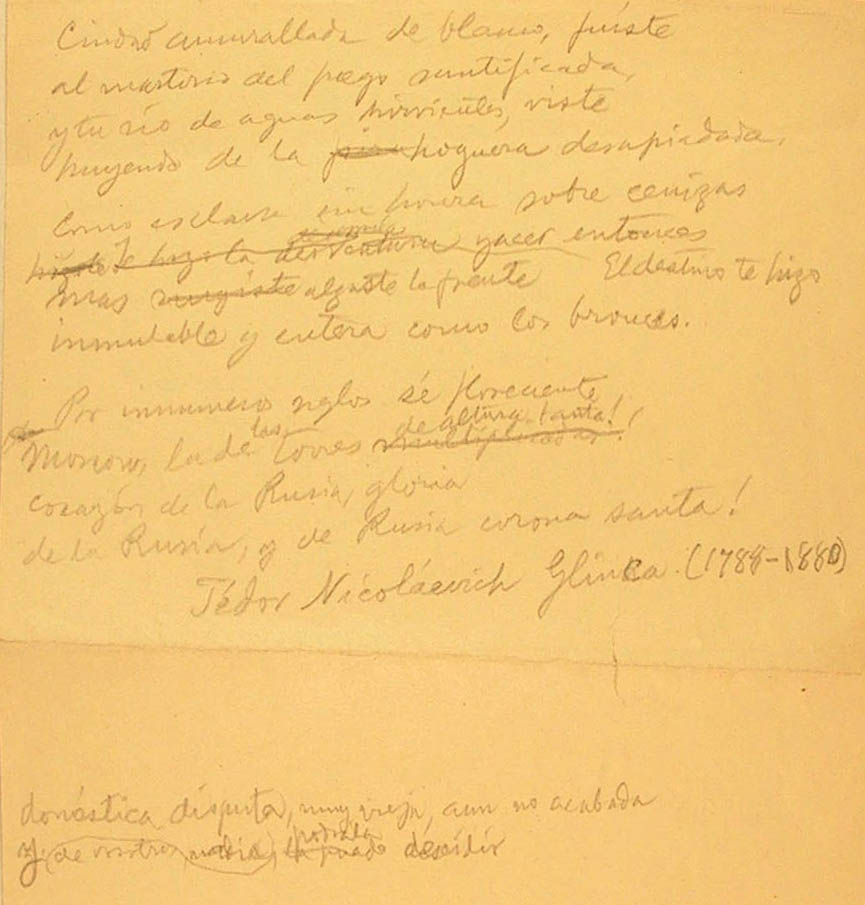 Ciudad amurallada de blanco, fuíste
al martirio del fuego santificada,
y tu río de aguas hirvientes, viste
huyendo de la hoguera desapiadada.
Como esclava sin honra sobre cenizas
Te hizo la yacer entonces
mas alzaste la frente El destino te hizo
inmutable y entera como los bronces.
Por innumeros siglos sé floreciente
Moscou, la de las torres de altura tanta!
corazón de la Rusia, gloria
de la Rusia, y de Rusia corona santa!
Fédor Nicoláevich Glinca. (1788-1880)
doméstica disputa, muy vieja, aun no acabada
y de vosotros nadie, podrala decidir